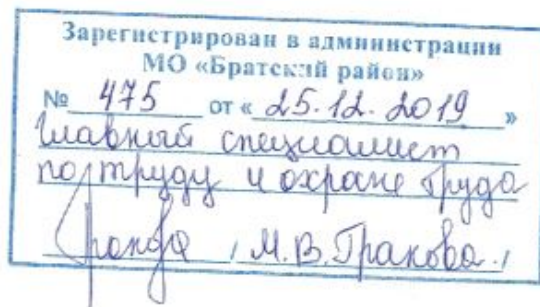 Зарегистрирован в администрации
МО «Братский район»
№ 475 от « 25.12.2019 »
Главный специалист
по труду и охране труда
/ М.В. Гракова /